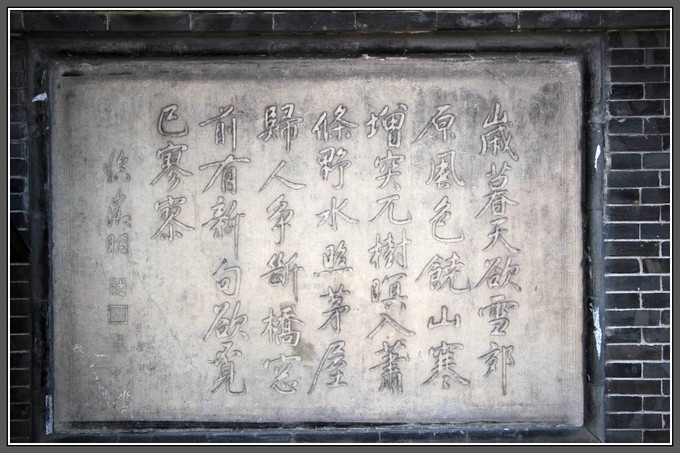 歲暮天欲雪郊
原風色饒山寒
增突兀樹暝入蕭
條野水照茅屋
歸人争斷橋窓
前有新句欲覓
已寥寥